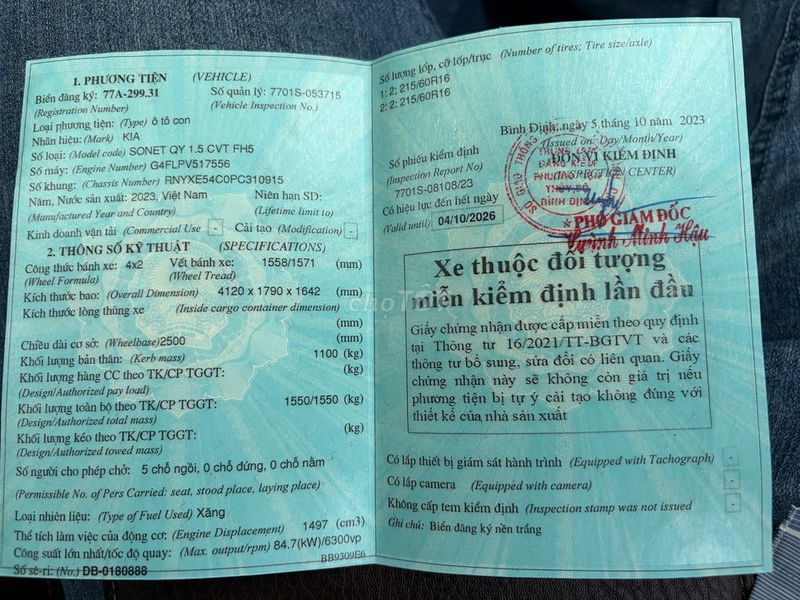 1. PHƯƠNG TIỆN (VEHICLE)
Biển đăng ký: 77A-299.31 Số quản lý: 7701S-053715
(Registration Number) (Vehicle Inspection No.)
Loại phương tiện: (Type) ô tô con
Nhãn hiệu: (Mark) KIA
Số loại: (Model code) SONET QY 1.5 CVT FH5
Số máy: (Engine Number) G4FLPV517556
Số khung: (Chassis Number) RNYXE54C0PC310915
Năm, Nước sản xuất: 2023, Việt Nam Niên hạn SD:
(Manufactured Year and Country) (Lifetime limit to)
Kinh doanh vận tải (Commercial Use - Cải tạo (Modification) -
2. THÔNG SỐ KỸ THUẬT (SPECIFICATIONS)
Công thức bánh xe: 4x2 Vết bánh xe: 1558/1571 (mm)
(Wheel Formula) (Wheel Tread)
Kích thước bao: (Overall Dimension) 4120 x 1790 x 1642 (mm)
Kích thước lòng thùng xe (Inside cargo container dimension)
(mm)
Chiều dài cơ sở: (Wheelbase)2500 (mm)
Khối lượng bản thân: (Kerb mass) 1100 (kg)
Khối lượng hàng CC theo TK/CP TGGT: (kg)
(Design/Authorized pay load)
Khối lượng toàn bộ theo TK/CP TGGT: 1550/1550 (kg)
(Design/Authorized total mass)
Khối lượng kéo theo TK/CP TGGT: (kg)
(Design/Authorized towed mass)
Số người cho phép chở: 5 chỗ ngồi, 0 chỗ đứng, 0 chỗ nằm
(Permissible No. of Pers Carried: seat, stood place, laying place)
Loại nhiên liệu: (Type of Fuel Used) Xăng
Thể tích làm việc của động cơ: (Engine Displacement) 1497 (cm3)
Công suất lớn nhất/tốc độ quay: (Max. output/rpm) 84.7(kW)/6300vp
BB9309E6
Số sê-ri: (No.) DB-0180888
Số lượng lốp, cỡ lốp/trục (Number of tires; Tire size/axle)
1: 2; 215/60R16
2: 2; 215/60R16
Bình Định, ngày 5 tháng 10 năm 2023
(Issued on: Day/Month/Year)
Số phiếu kiểm định ĐƠN VỊ KIỂM ĐỊNH
(Inspection Report No) (INSPECTION CENTER)
7701S-08108/23
Có hiệu lực đến hết ngày
(Valid until) 04/10/2026
SỞ GIAO THÔNG
TRUNG TÂM
ĐĂNG KIỂM
PHƯƠNG TIỆN
THỦY BỘ
BÌNH ĐỊNH
PHÓ GIÁM ĐỐC
Huỳnh Minh Hậu
Xe thuộc đối tượng
miễn kiểm định lần đầu
Giấy chứng nhận được cấp miễn theo quy định
tại Thông tư 16/2021/TT-BGTVT và các
thông tư bổ sung, sửa đổi có liên quan. Giấy
chứng nhận này sẽ không còn giá trị nếu
phương tiện bị tự ý cải tạo không đúng với
thiết kế của nhà sản xuất
Có lắp thiết bị giám sát hành trình (Equipped with Tachograph) -
Có lắp camera (Equipped with camera) -
Không cấp tem kiểm định (Inspection stamp was not issued -
Ghi chú: Biển đăng ký nền trắng
choTỐT